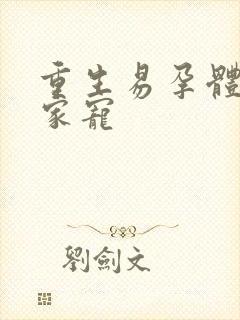 重生易孕體
家寵
劉劍文